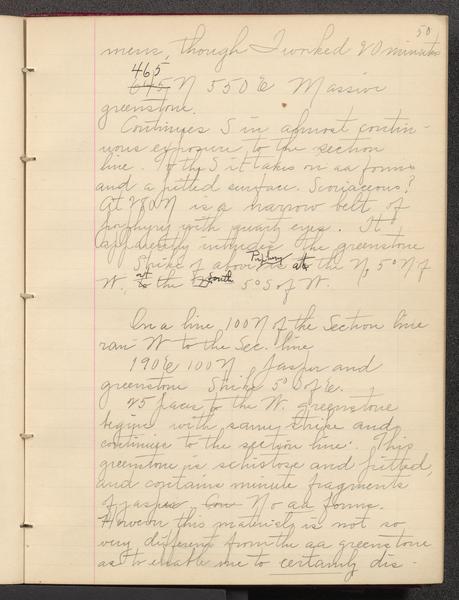 50
mens, though I worked 20 minutes
465
645 N 550 E Massive
greenstone.
Continues S in almost contin-
uous exposure to the section
line. To the S it takes on aa forms
and a pitted surface. Scoriaceous?
At 280 N is a narrow belt of
porphyry with quartz eyes. It
apparently intrudes the greenstone
Strike of above is Porphyry at the N, 5° N of
W, at the South 5° S of W.
On a line 100 N of the Section line
ran W to the Sec. line
190 E 100 N, Jasper and
greenstone Strike 5° S of E.
25 paces to the W. greenstone
begins with same strike and
continues to the section line. This
greenstone is schistose and pitted,
and contains minute fragments
of jasper Con No aa forms.
However this material is not so
very different from the aa greenstone
as to enable me to certainly dis-